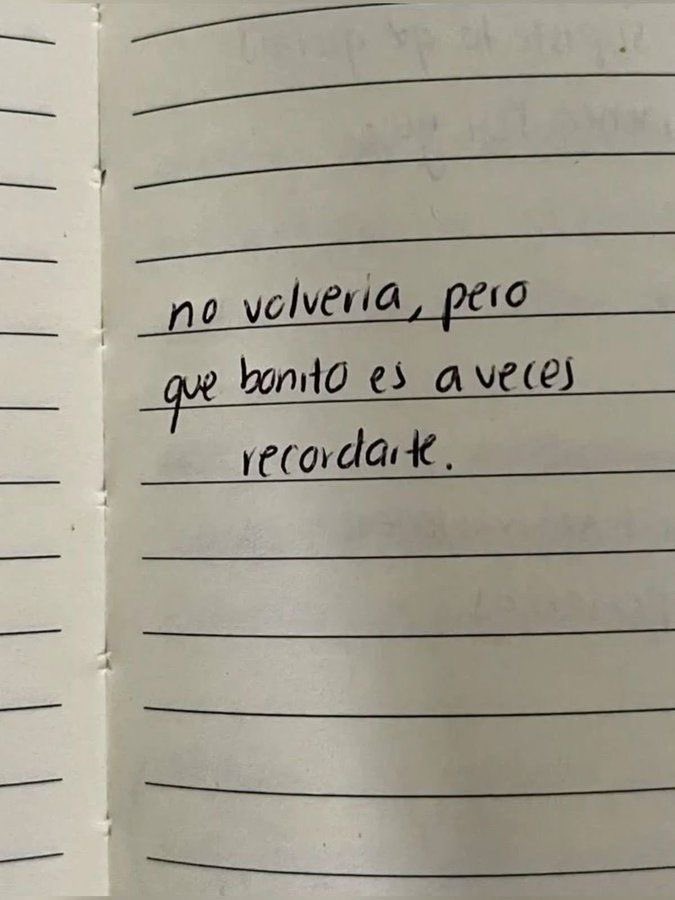 no volveria, pero
que bonito es a veces
recordarte.